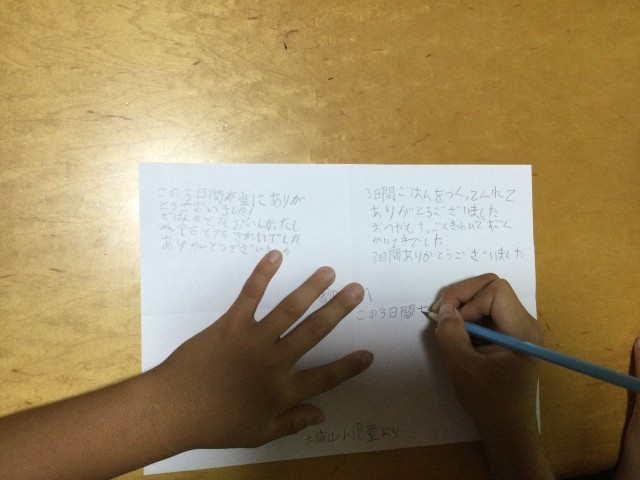 この3日間本当にありが
とうございました!
ごはんもとてもおいしかったし
へやもとてもきれいでした
ありがとうございました
3日間ごはんをつくってくれて
ありがとうございました
おへやもすごくきれいで
かいてきでした
3日間ありがとうございました
この3日間
小児童より